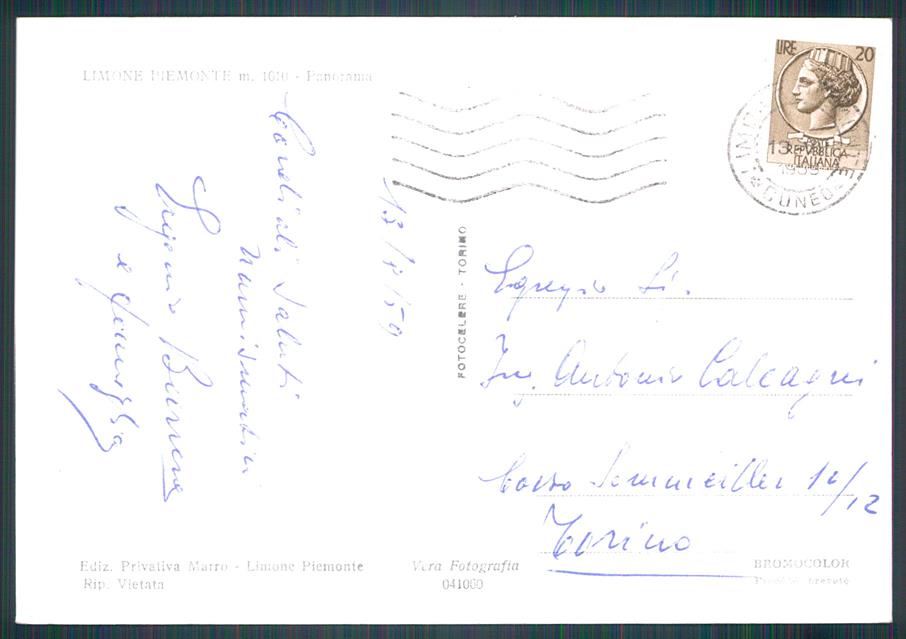 LIMONE PIEMONTE m. 1010 - Panorama
Cordiali Saluti
Numismatici
Eugenio
e famiglia
13/8/59
FOTOCELERE - TORINO
LIRE 20
REPVBBLICA
ITALIANA
13
CUNEO
Egregio Si.
Ing. Antonio Calcagni
Corso Sommeiller 12/12
Torino
Ediz. Privativa Marro - Limone Piemonte
Rip. Vietata
Vera Fotografia
041060
BROMOCOLOR